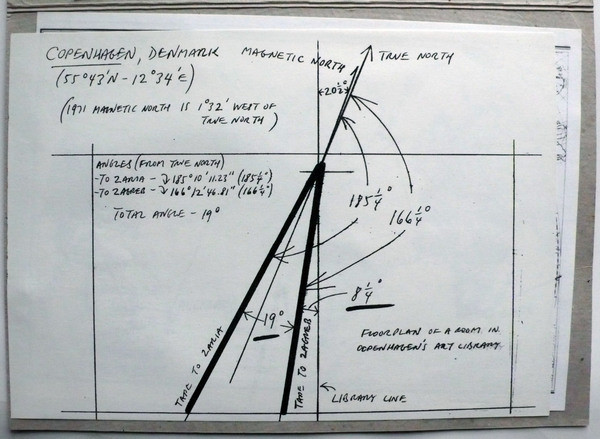 COPENHAGEN, DENMARK
(55°43'N - 12°34'E)
(1971 MAGNETIC NORTH IS 1°32' WEST OF
TRUE NORTH)
MAGNETIC NORTH
TRUE NORTH
20½°
ANGLES (FROM TRUE NORTH)
- TO ZARIA - 185°10'11.23" (185¼°)
- TO ZAGREB - 166°12'46.81" (166¼°)
TOTAL ANGLE - 19°
185¼°
166¼°
8¼°
19°
FLOORPLAN OF A ROOM IN
COPENHAGEN'S ART LIBRARY
TAPE TO ZARIA
TAPE TO ZAGREB
LIBRARY LINE